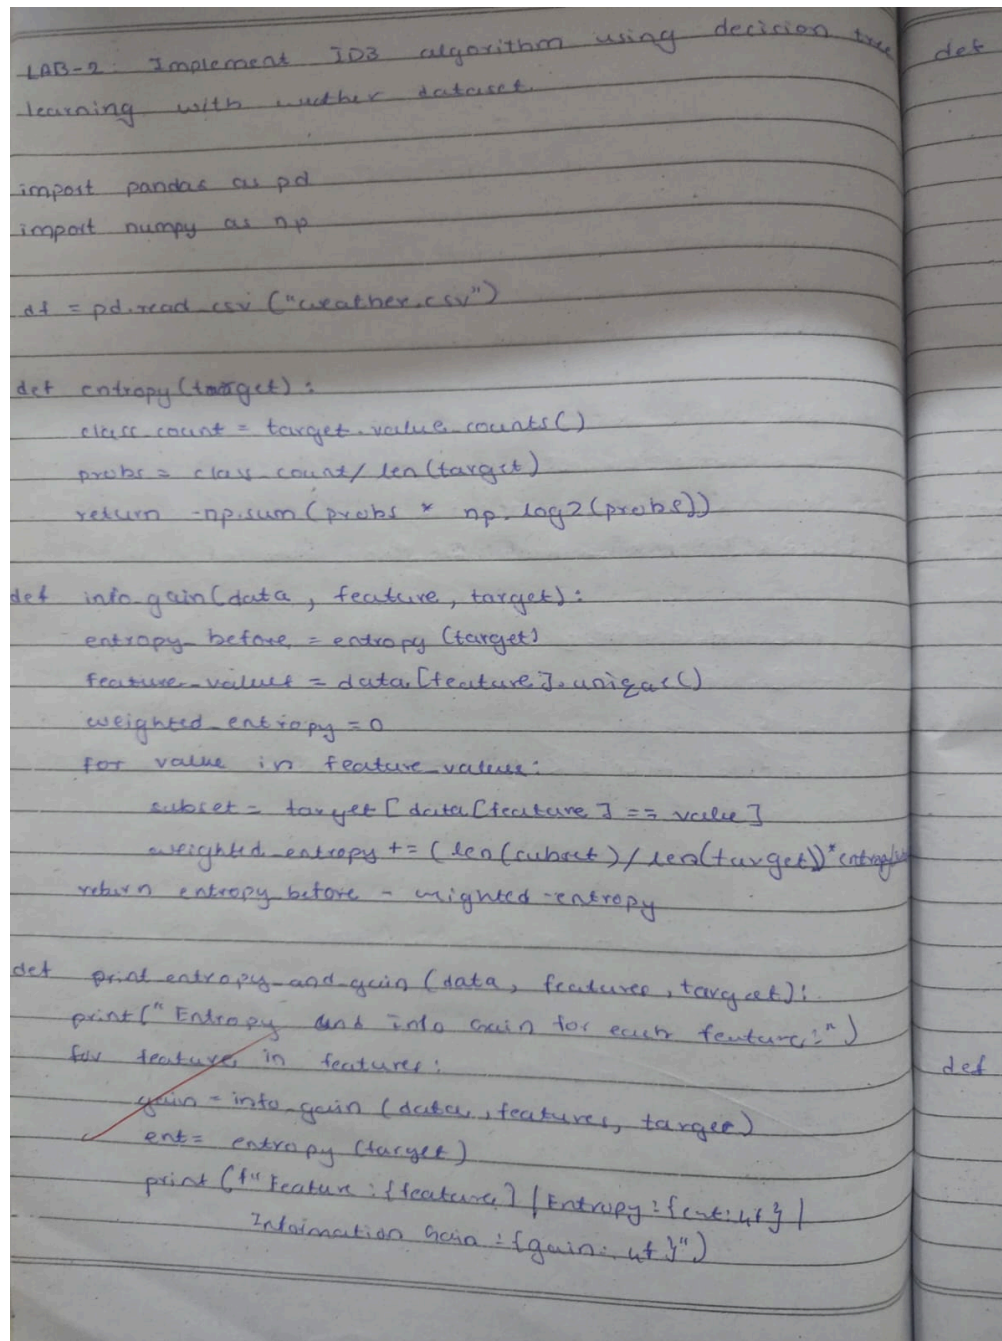 LAB-2: Implement ID3 algorithm using decision tree
learning with wether dataset.
import pandas as pd
import numpy as np
df = pd.read_csv ("weather.csv")
def entropy (target):
class_count = target.value_counts()
probs = class_count/len(target)
return -np.sum(probs * np.log2(probs))
def info_gain(data, feature, target):
entropy_before = entropy (target)
feature_values = data[feature].unique()
weighted_entropy = 0
for value in feature_values:
subset = target [data[feature] == value]
weighted_entropy += (len(subset)/len(target))*
return entropy_before - wighted-entropy
def print_entropy_and_gain (data, features, target):
print(" Entropy and info Gain for each feature:")
for feature in features:
gain = info_gain (data, features, target)
ent = entropy (target)
print (f" Feature : {feature} | Entropy : {ent:.4f} |
Information Gain : {gain:.4f}")
def
def